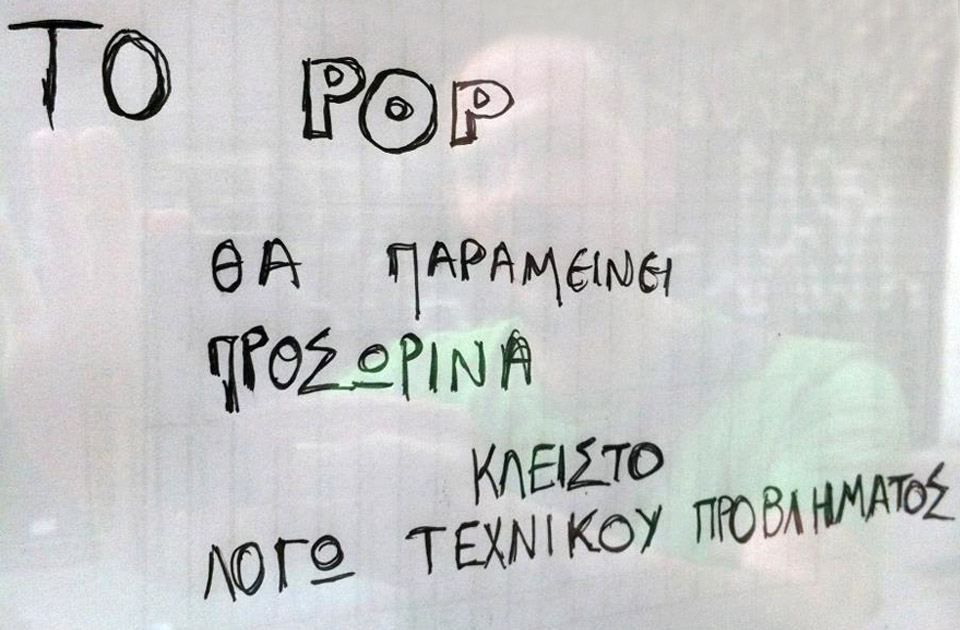 ΤΟ POP
ΘΑ ΠΑΡΑΜΕΙΝΕΙ
ΠΡΟΣΩΡΙΝΑ
ΚΛΕΙΣΤΟ
ΛΟΓΩ ΤΕΧΝΙΚΟΥ ΠΡΟΒΛΗΜΑΤΟΣ